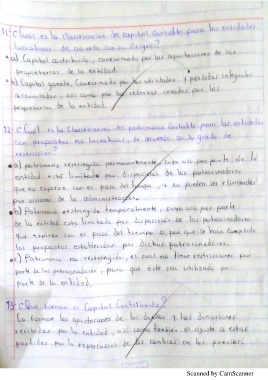 11. ¿Cual es la Clasificación del Capital Contable para las entidades
lucrativas de acuerdo con su Origen?
a) Capital contribuido, conformado por las aportaciones de los
propietarios de la entidad.
b) Capital ganado, Conformado por las utilidades y pérdidas integrales
acumuladas, así como por las reservas creadas por los
propietarios de la entidad.
12. ¿Cuál es la Clasificación del patrimonio Contable para las entidades
con propósitos no lucrativos, de acuerdo su grado de
restricción?
a) patrimonio restringido permanentemente, cuyo uso por parte de la
entidad está limitado por disposición de los patrocinadores
que no expiran con el paso del tiempo, y no pueden ser eliminadas
por acciones de la administración.
b) Patrimonio restringido temporalmente, cuyo uso por parte
de la entidad está limitado por disposición de los patrocinadores
que expiran con el paso del tiempo o por que se han cumplido
los propósitos establecidos por dichos patrocinadores.
c) Patrimonio no restringido, el cual no tiene restricciones por
parte de los patrocinadores, para que este sea utilizado por
parte de la entidad.
13. ¿Que forman el Capital Contribuido?
Lo forman las aportaciones de los dueños y las donaciones
recibidas por la entidad, así como también el ajuste a estas
partidas por la repercusión de los cambios en los precios.
Scanned by CamScanner